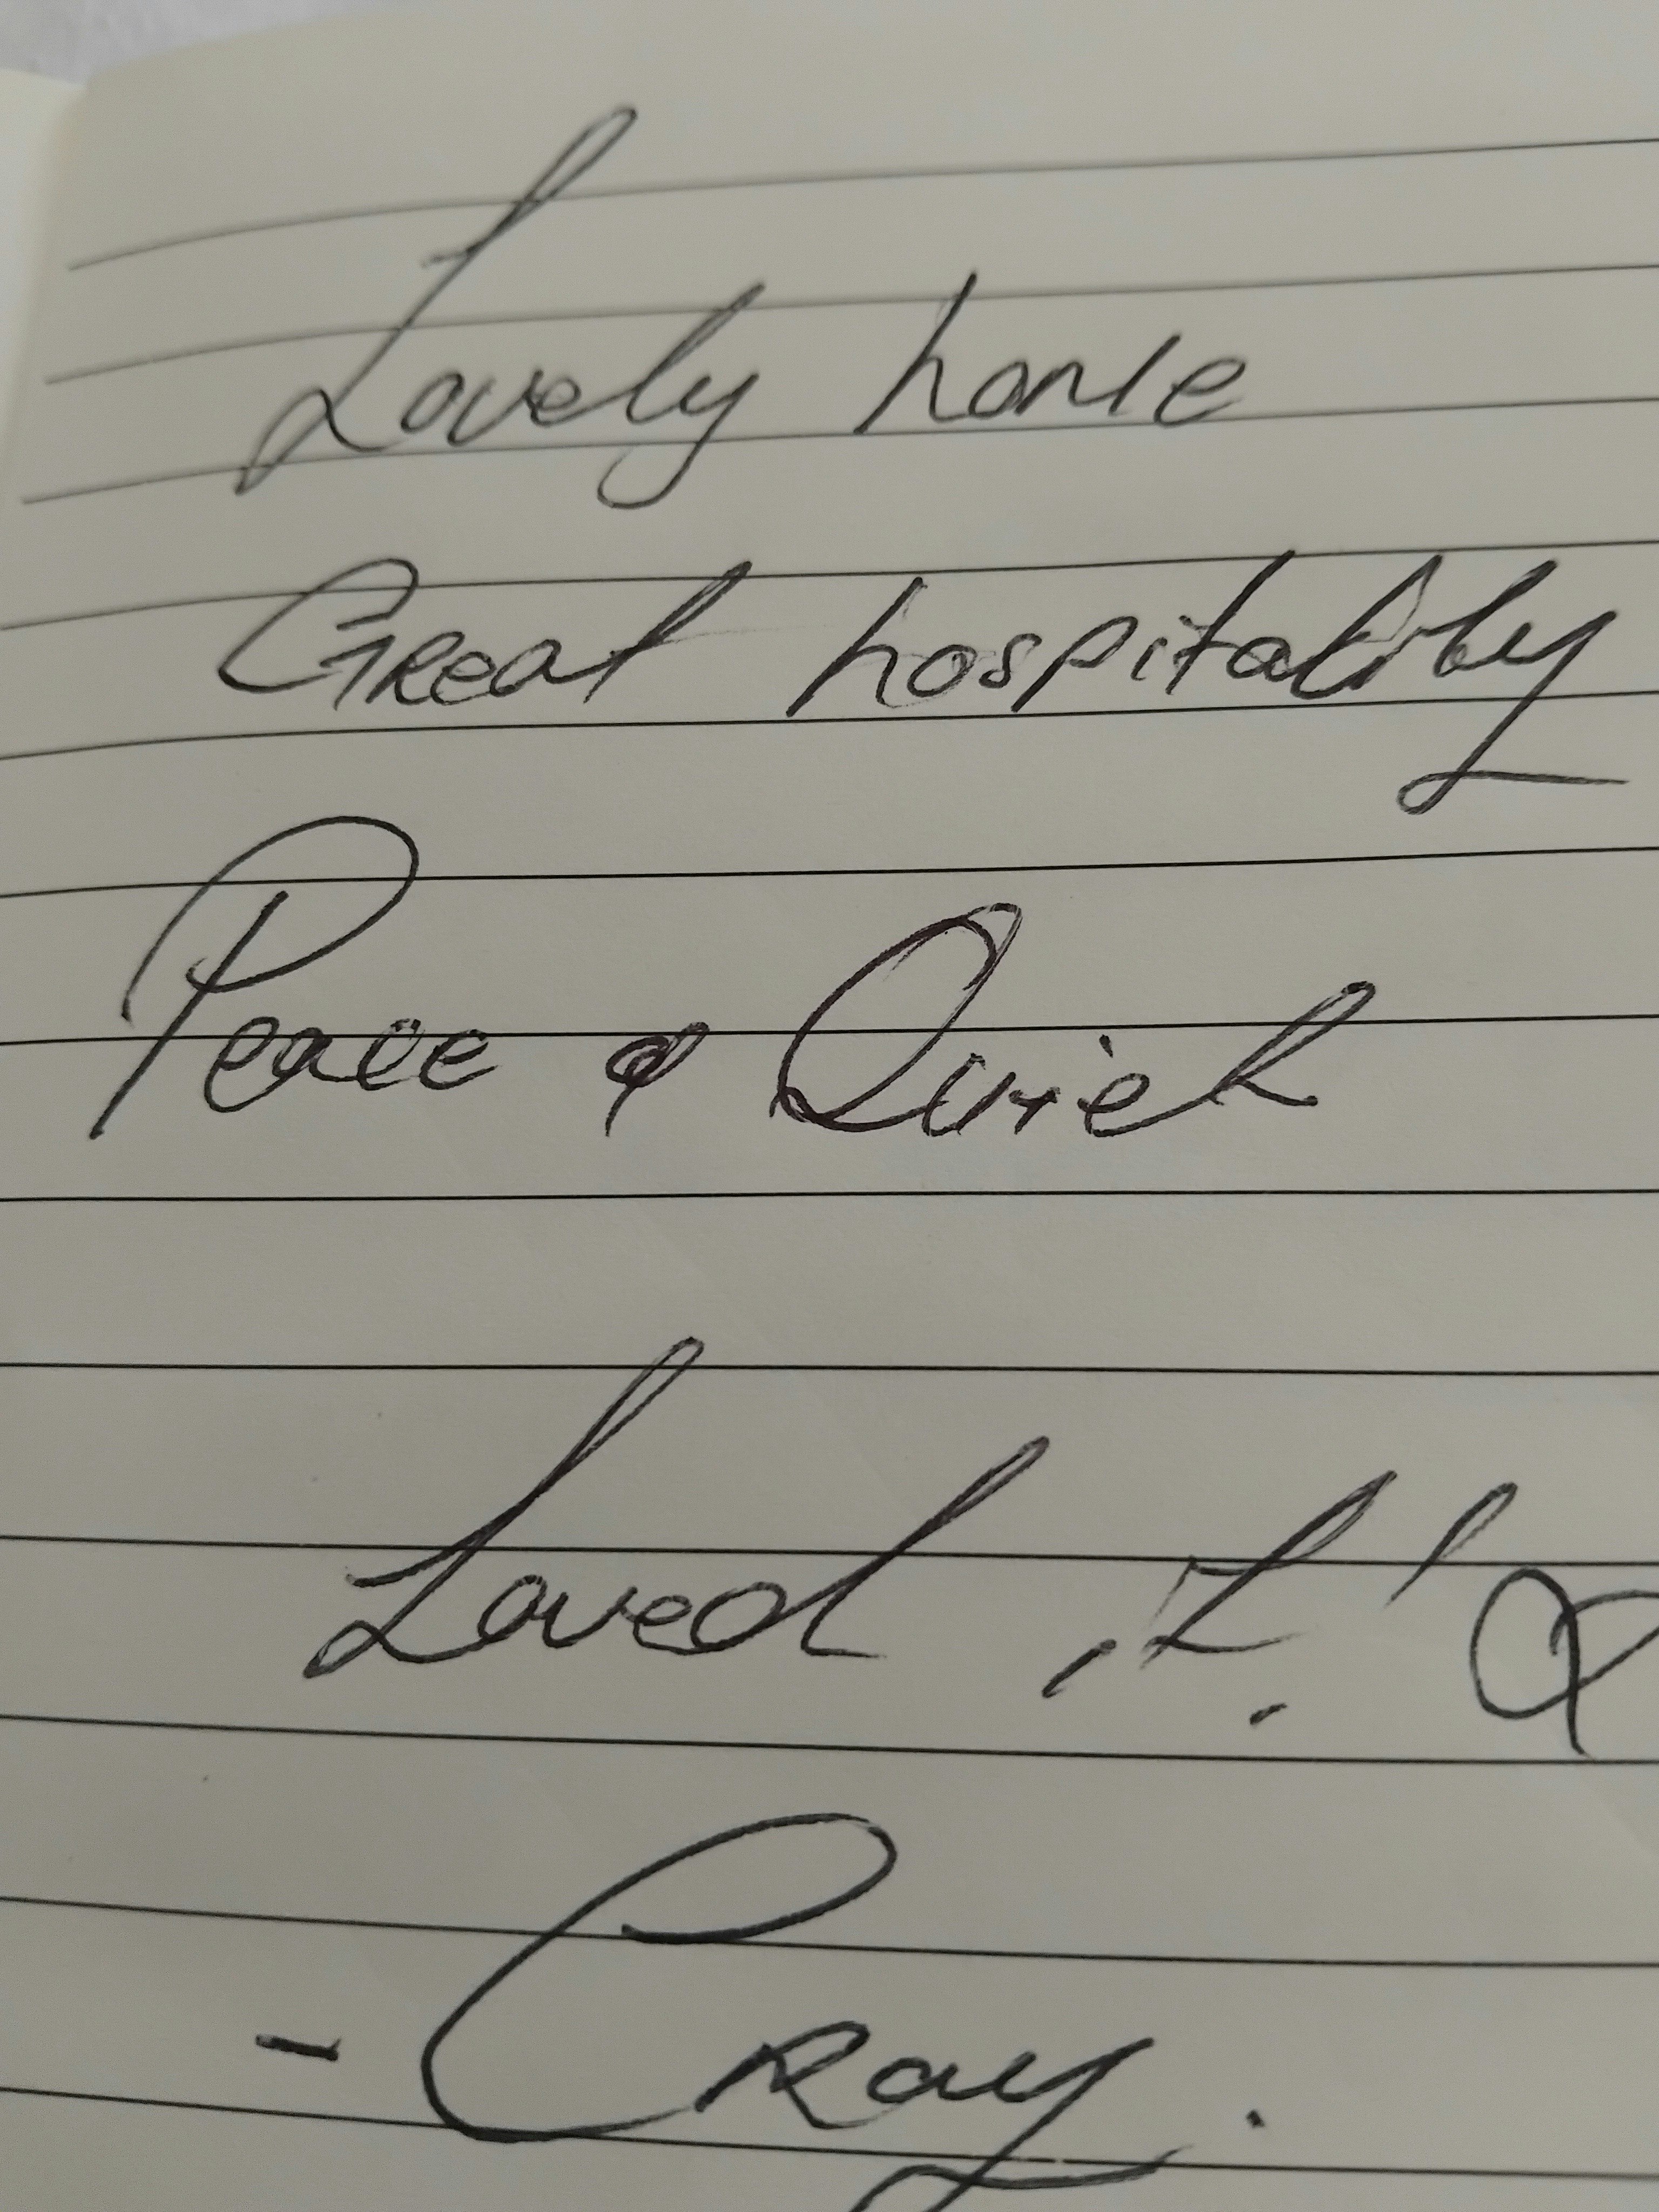 Lovely home
Great hospitality
Peace & Quiet
Loved it!
- Cray.